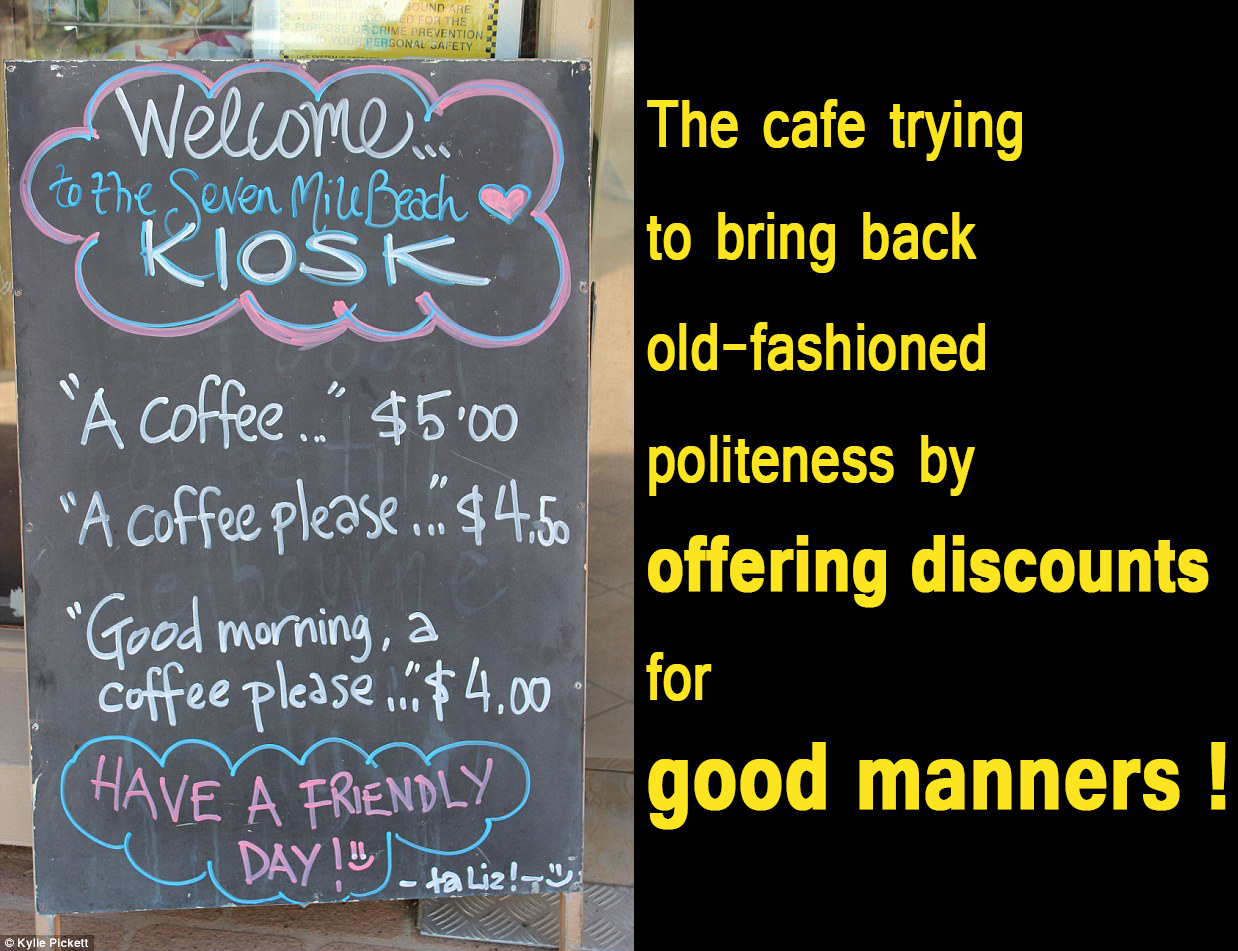 IMAGES AND SOUND ARE
BEING RECORDED FOR THE
PURPOSE OF CRIME PREVENTION
YOUR PERSONAL SAFETY
Welcome...
to the Seven Mile Beach
KIOSK
"A coffee..." $5.00
"A coffee please..." $4.50
"Good morning, a
coffee please..." $4.00
HAVE A FRIENDLY
DAY!
- ta Liz! -
© Kylie Pickett
The cafe trying
to bring back
old-fashioned
politeness by
offering discounts
for
good manners !